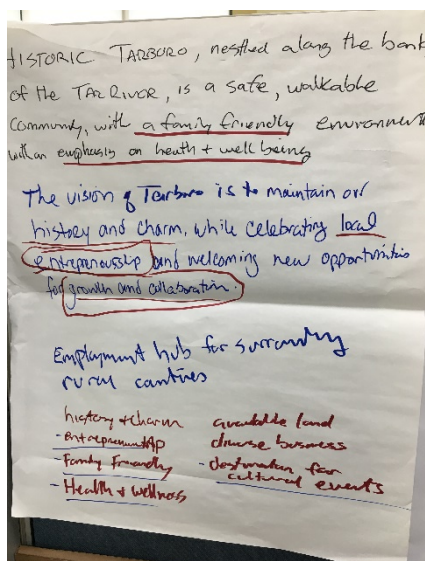 HISTORIC TARBORO, nestled along the bank
of the TAR RIVER, is a safe, walkable
community, with a family friendly environment
with an emphasis on heath + well being
The vision of Tarboro is to maintain our
history and charm, while celebrating local
entrepreneurship and welcoming new opportunities
for growth and collaboration.
Employment hub for surrounding
rural counties
history + charm available land
- entrepreneurship diverse business
- Family Friendly - destination for
- Health + wellness cultural events